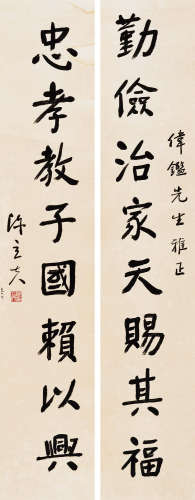 偉鑑先生雅正
勤儉治家天賜其福
忠孝教子國賴以興
陳立夫